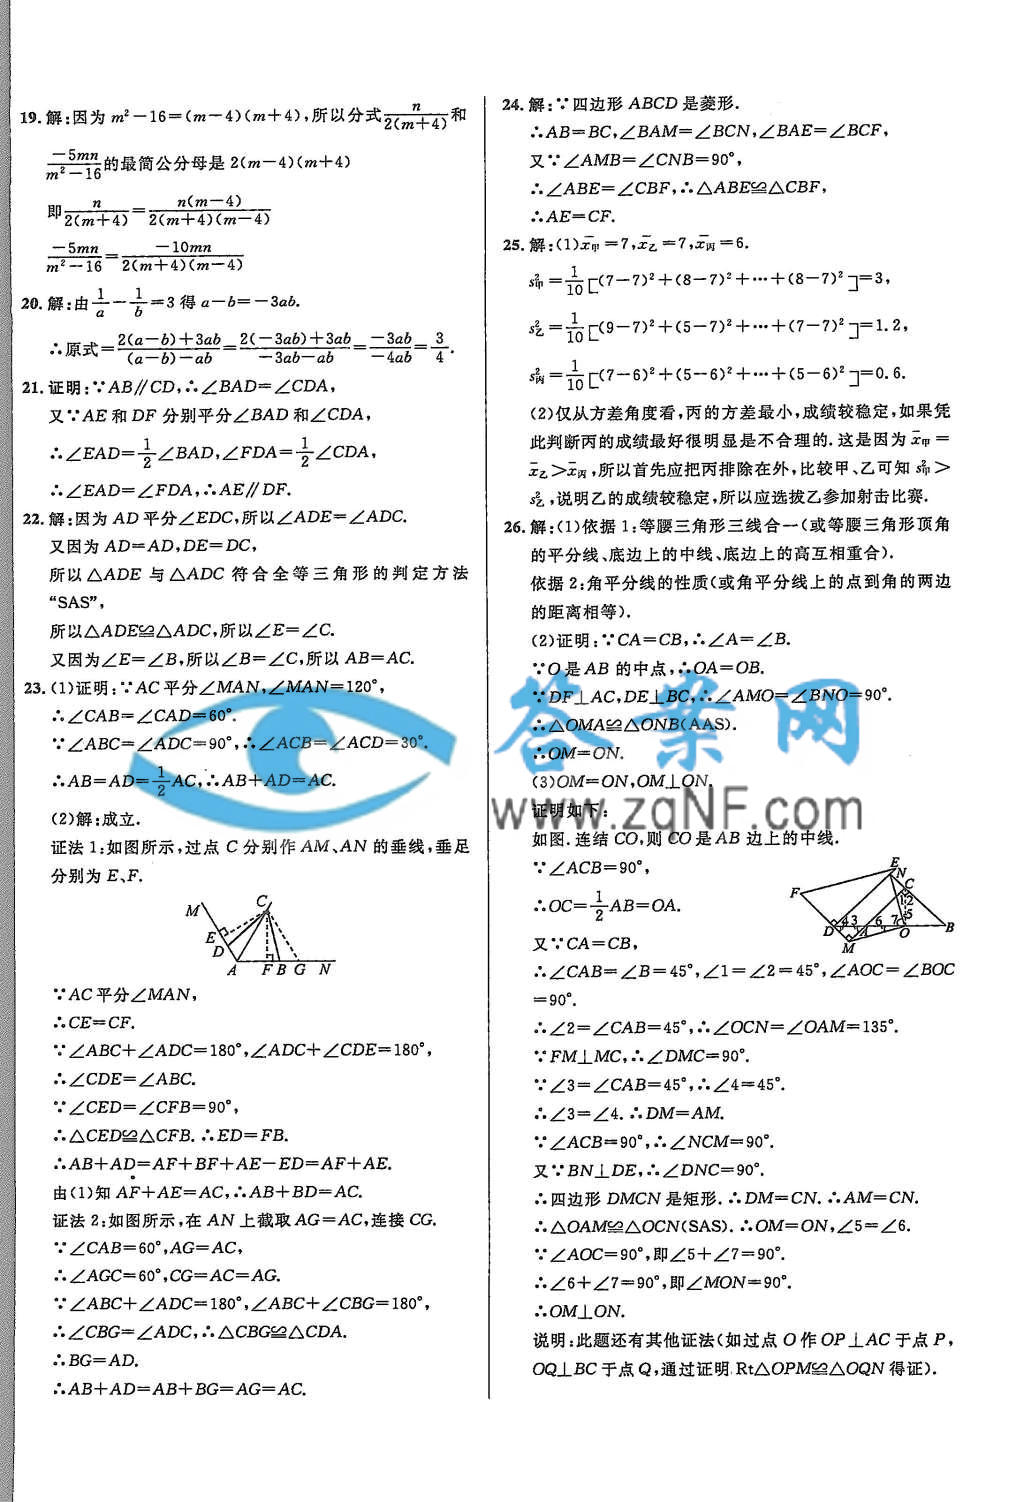 19.解:因为 m²-16=(m-4)(m+4),所以分式 n/2(m+4) 和
-5mn/m²-16 的最简公分母是 2(m-4)(m+4)
即 n/2(m+4) = n(m-4)/2(m+4)(m-4)
-5mn/m²-16 = -10mn/2(m+4)(m-4)
20.解:由 1/a - 1/b =3 得 a-b=-3ab.
∴原式= 2(a-b)+3ab/(a-b)-ab = 2(-3ab)+3ab/-3ab-ab = -3ab/-4ab = 3/4.
21.证明:∵AB∥CD,∴∠BAD=∠CDA,
又∵AE 和 DF 分别平分∠BAD 和∠CDA,
∴∠EAD=1/2∠BAD,∠FDA=1/2∠CDA,
∴∠EAD=∠FDA,∴AE∥DF.
22.解:因为 AD 平分∠EDC,所以∠ADE=∠ADC.
又因为 AD=AD,DE=DC,
所以△ADE 与△ADC 符合全等三角形的判定方法
“SAS”,
所以△ADE≌△ADC,所以∠E=∠C.
又因为∠E=∠B,所以∠B=∠C,所以 AB=AC.
23.(1)证明:∵AC 平分∠MAN,∠MAN=120°,
∴∠CAB=∠CAD=60°.
∵∠ABC=∠ADC=90°,∴∠ACB=∠ACD=30°.
∴AB=AD=1/2AC,∴AB+AD=AC.
(2)解:成立.
证法 1:如图所示,过点 C 分别作 AM、AN 的垂线,垂足
分别为 E、F.
M C
E
D
A F B G N
∵AC 平分∠MAN,
∴CE=CF.
∵∠ABC+∠ADC=180°,∠ADC+∠CDE=180°,
∴∠CDE=∠ABC.
∵∠CED=∠CFB=90°,
∴△CED≌△CFB.∴ED=FB.
∴AB+AD=AF+BF+AE-ED=AF+AE.
由(1)知 AF+AE=AC,∴AB+BD=AC.
证法 2:如图所示,在 AN 上截取 AG=AC,连接 CG.
∵∠CAB=60°,AG=AC,
∴∠AGC=60°,CG=AC=AG.
∵∠ABC+∠ADC=180°,∠ABC+∠CBG=180°,
∴∠CBG=∠ADC,∴△CBG≌△CDA.
∴BG=AD.
∴AB+AD=AB+BG=AG=AC.
24.解:∵四边形 ABCD 是菱形.
∴AB=BC,∠BAM=∠BCN,∠BAE=∠BCF,
又∵∠AMB=∠CNB=90°,
∴∠ABE=∠CBF,∴△ABE≌△CBF,
∴AE=CF.
25.解:(1)x̄甲=7,x̄乙=7,x̄丙=6.
s²甲=1/10[(7-7)²+(8-7)²+…+(8-7)²]=3,
s²乙=1/10[(9-7)²+(5-7)²+…+(7-7)²]=1.2,
s²丙=1/10[(7-6)²+(5-6)²+…+(5-6)²]=0.6.
(2)仅从方差角度看,丙的方差最小,成绩较稳定,如果凭
此判断丙的成绩最好很明显是不合理的.这是因为 x̄甲=
x̄乙>x̄丙,所以首先应把丙排除在外,比较甲、乙可知 s²甲>
s²乙,说明乙的成绩较稳定,所以应选拔乙参加射击比赛.
26.解:(1)依据 1:等腰三角形三线合一(或等腰三角形顶角
的平分线、底边上的中线、底边上的高互相重合).
依据 2:角平分线的性质(或角平分线上的点到角的两边
的距离相等).
(2)证明:∵CA=CB,∴∠A=∠B.
∵O是 AB 的中点,∴OA=OB.
∵DF⊥AC,DE⊥BC,∴∠AMO=∠BNO=90°.
∴△OMA≌△ONB(AAS).
∴OM=ON.
(3)OM=ON,OM⊥ON.
证明如下:
如图.连结 CO,则 CO 是 AB 边上的中线.
∵∠ACB=90°,
∴OC=1/2AB=OA.
又∵CA=CB,
E N C
F 1 2
5
D 4 3 A 6 7 O B
M
∴∠CAB=∠B=45°,∠1=∠2=45°,∠AOC=∠BOC
=90°.
∴∠2=∠CAB=45°,∴∠OCN=∠OAM=135°.
∵FM⊥MC,∴∠DMC=90°.
∵∠3=∠CAB=45°,∴∠4=45°.
∴∠3=∠4.∴DM=AM.
∵∠ACB=90°,∴∠NCM=90°.
又∵BN⊥DE,∴∠DNC=90°.
∴四边形 DMCN 是矩形.∴DM=CN.∴AM=CN.
∴△OAM≌△OCN(SAS).∴OM=ON,∠5=∠6.
∵∠AOC=90°,即∠5+∠7=90°.
∴∠6+∠7=90°,即∠MON=90°.
∴OM⊥ON.
说明:此题还有其他证法(如过点 O 作 OP⊥AC 于点 P,
OQ⊥BC 于点 Q,通过证明 Rt△OPM≌△OQN 得证).
答案网
www.zqNF.com